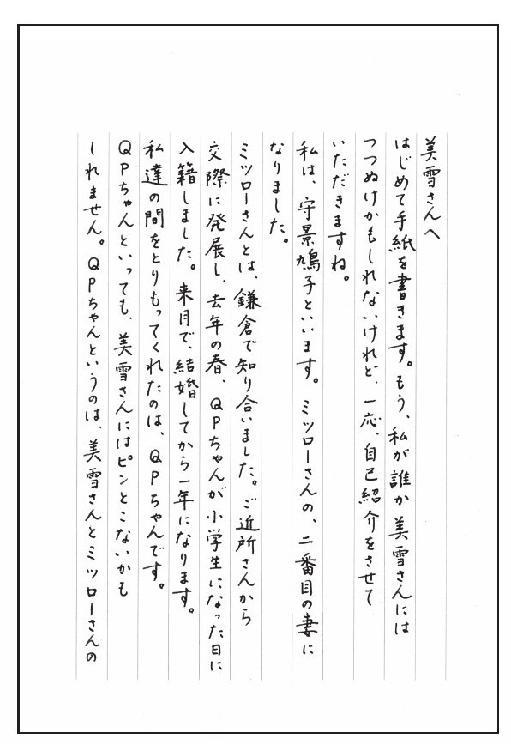 美雪さんへ
はじめて手紙を書きます。もう、私が誰か美雪さんには
つつぬけかもしれないけれど、一応、自己紹介をさせて
いただきますね。
私は、守景鳩子といいます。ミツローさんの、二番目の妻に
なりました。
ミツローさんとは、鎌倉で知り合いました。ご近所さんから
交際に発展し、去年の春、QPちゃんが小学生になった日に
入籍しました。来月で、結婚してから一年になります。
私達の間をとりもってくれたのは、QPちゃんです。
QPちゃんといっても、美雪さんにはピンとこないかも
しれません。QPちゃんというのは、美雪さんとミツローさんの